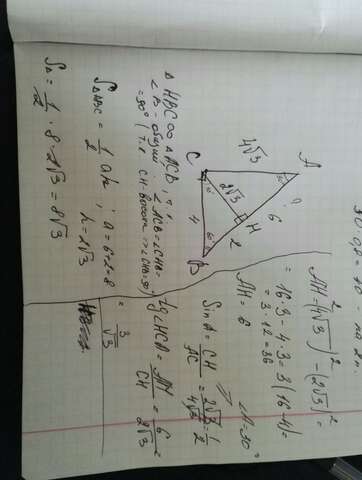 A
C
B
H
4√3
2√3
6
2
4
AH = (4√3)² − (2√3)² =
= 16·3 − 4·3 = 3(16−4) =
= 3·12 = 36
AH = 6
∠A = 30°
Sin A = CH/AC = 2√3/4√3 = 1/2
tg∠HCA = AH/CH = 6/2√3 =
= 3/√3
△ HBC ∞ △ ACB, т.к.
∠B - общий ∠ACB = ∠CHB =
= 90° (т.к. CH-высота => ∠CHB = 90°)
S△ABC = 1/2 ah; a = 6+2 = 8
h = 2√3
S△ = 1/2 · 8 · 2√3 = 8√3